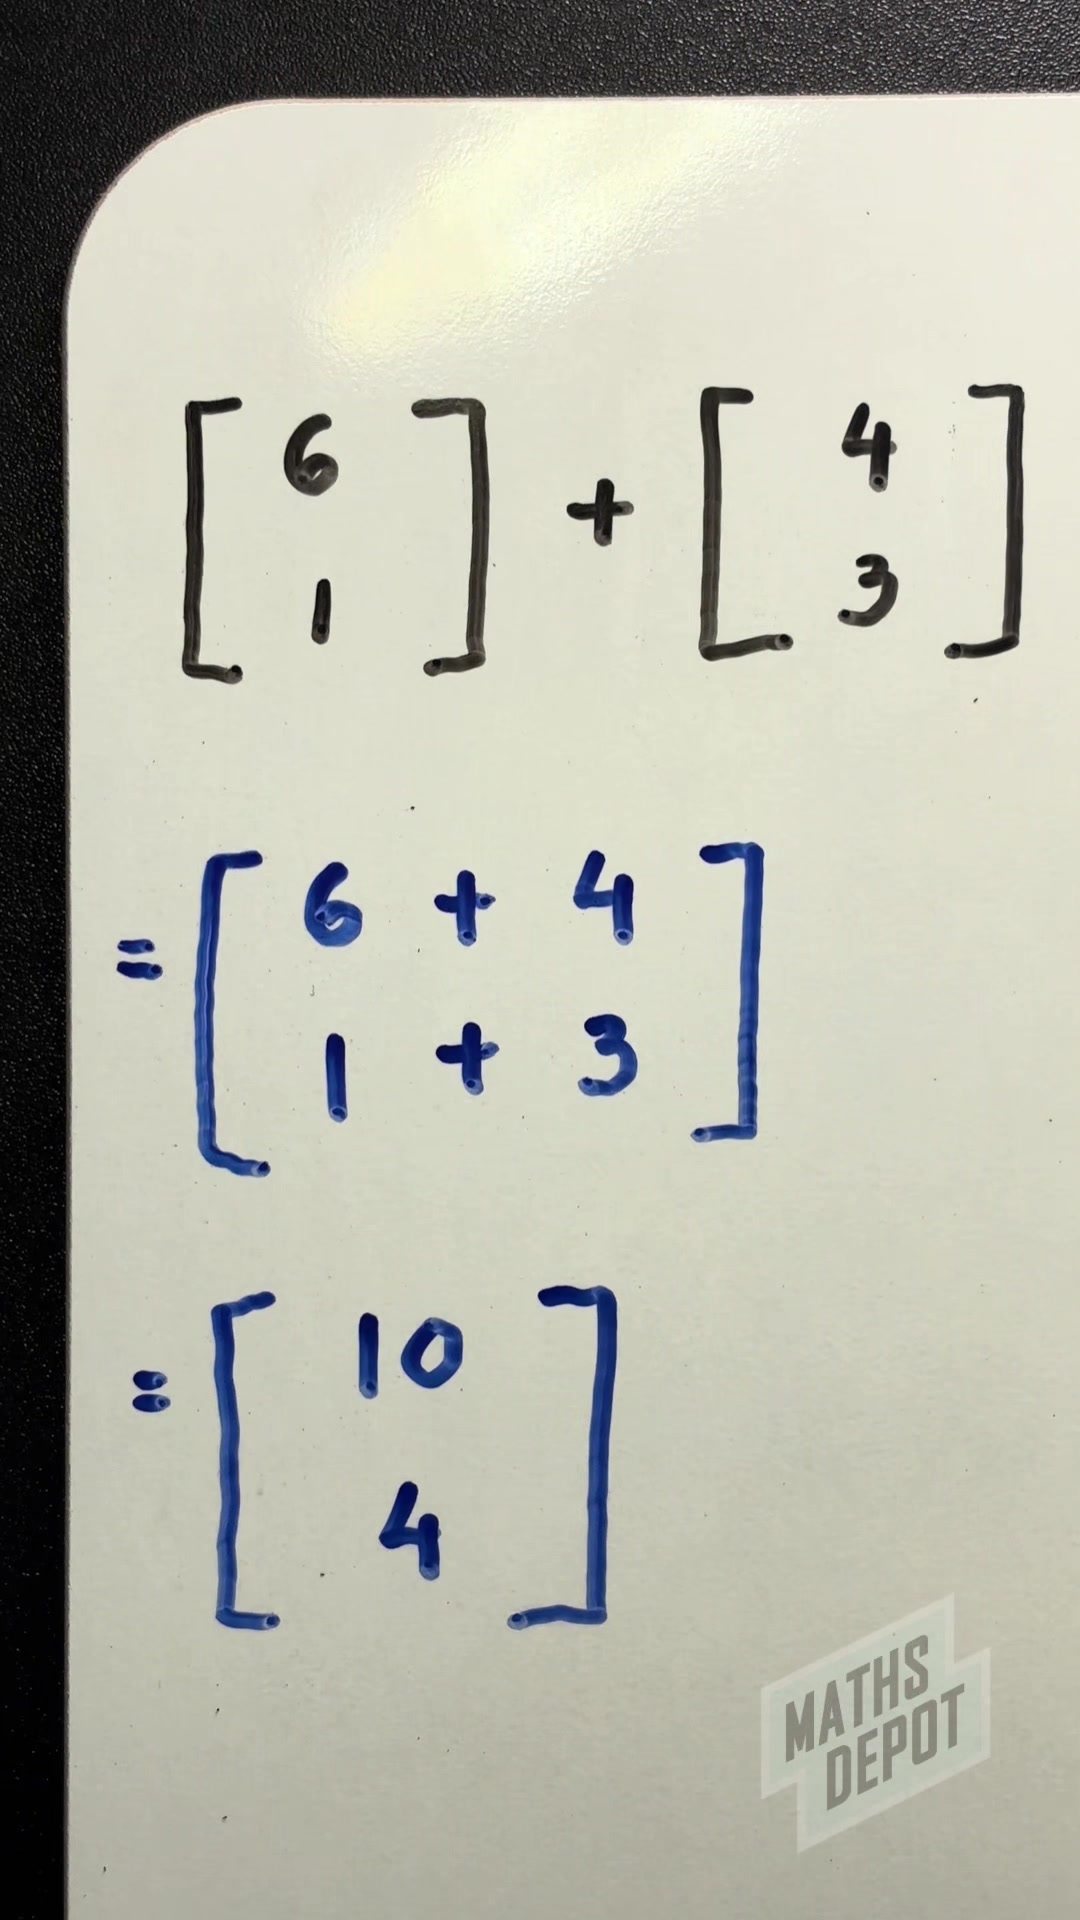 [ 6 ] + [ 4 ]
[ 1 ] [ 3 ]
= [ 6 + 4 ]
[ 1 + 3 ]
= [ 10 ]
[ 4 ]
MATHS
DEPOT